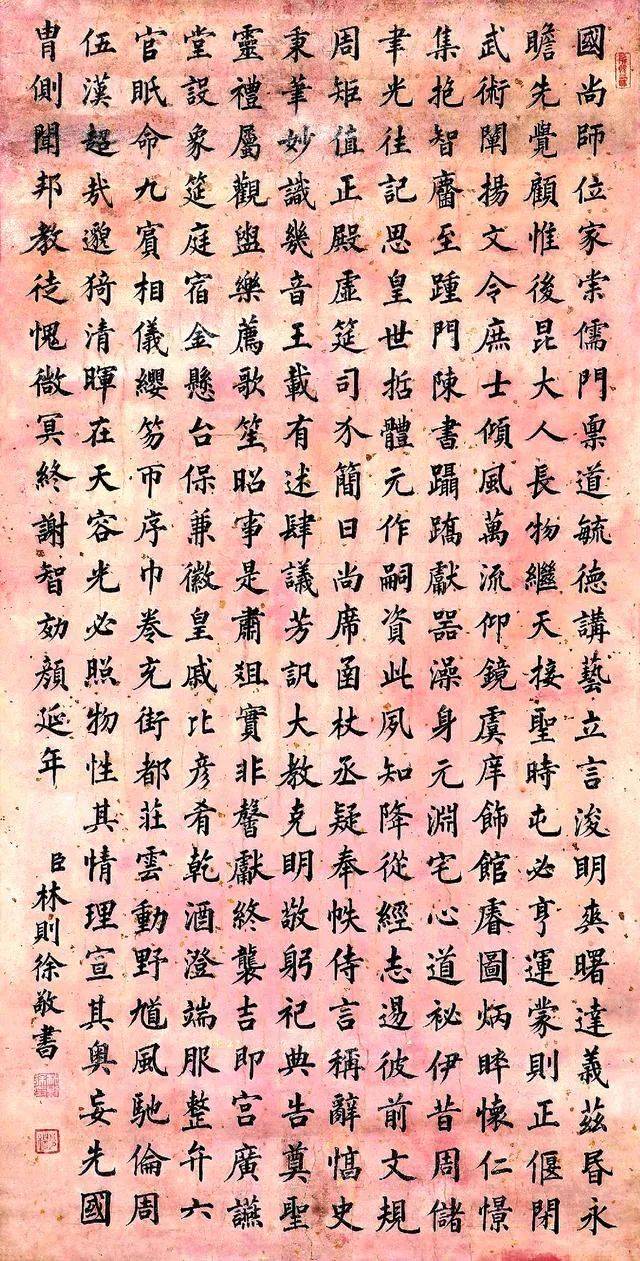 國尚師位家崇儒門稟道毓德講藝立言浚明爽曙達義茲昏永
瞻先覺顧惟後昆大人長物繼天接聖時屯必亨運蒙則正偃閉
武術闡揚文令庶士傾風萬流仰鏡虞庠飾館睿圖炳睟懷仁憬
集抱智麕至踵門陳書躡蹻獻器澡身元淵宅心道祕伊昔周儲
聿光往記思皇世哲體元作嗣資此夙知降從經志逷彼前文規
周矩值正殿虛筵司分簡日尚席函杖丞疑奉帙侍言稱辭惇史
秉筆妙識幾音王載有述肆議芳訊大教克明敬躬祀典告奠聖
靈禮屬觀盥樂薦歌笙昭事是肅俎實非馨獻終襲吉即宮廣讌
堂設象筵庭宿金懸台保兼徽皇戚比彥肴乾酒澄端服整弁六
官眡命九賓相儀纓笏帀序巾卷充街都莊雲動野馗風馳倫周
伍漢超哉邈猗清暉在天容光必照物性其情理宣其奧妄先國
胄側聞邦教徒愧微冥終謝智効顏延年
臣林則徐敬書